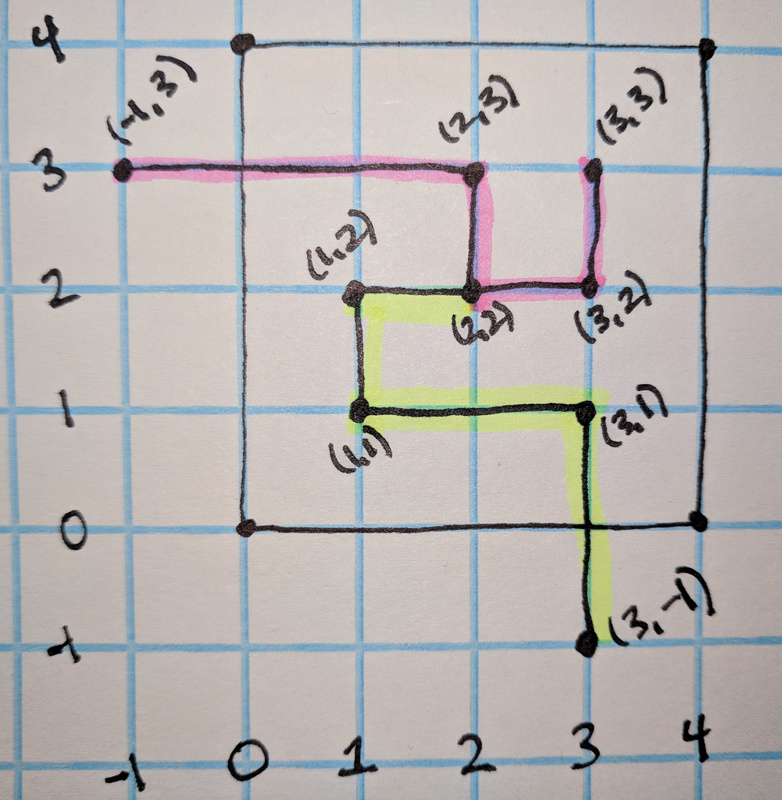 4
(-1,3)
(2,3)
(3,3)
3
(1,2)
2
(2,2)
(3,2)
1
(1,1)
(3,1)
0
-1
(3,-1)
-1 0 1 2 3 4